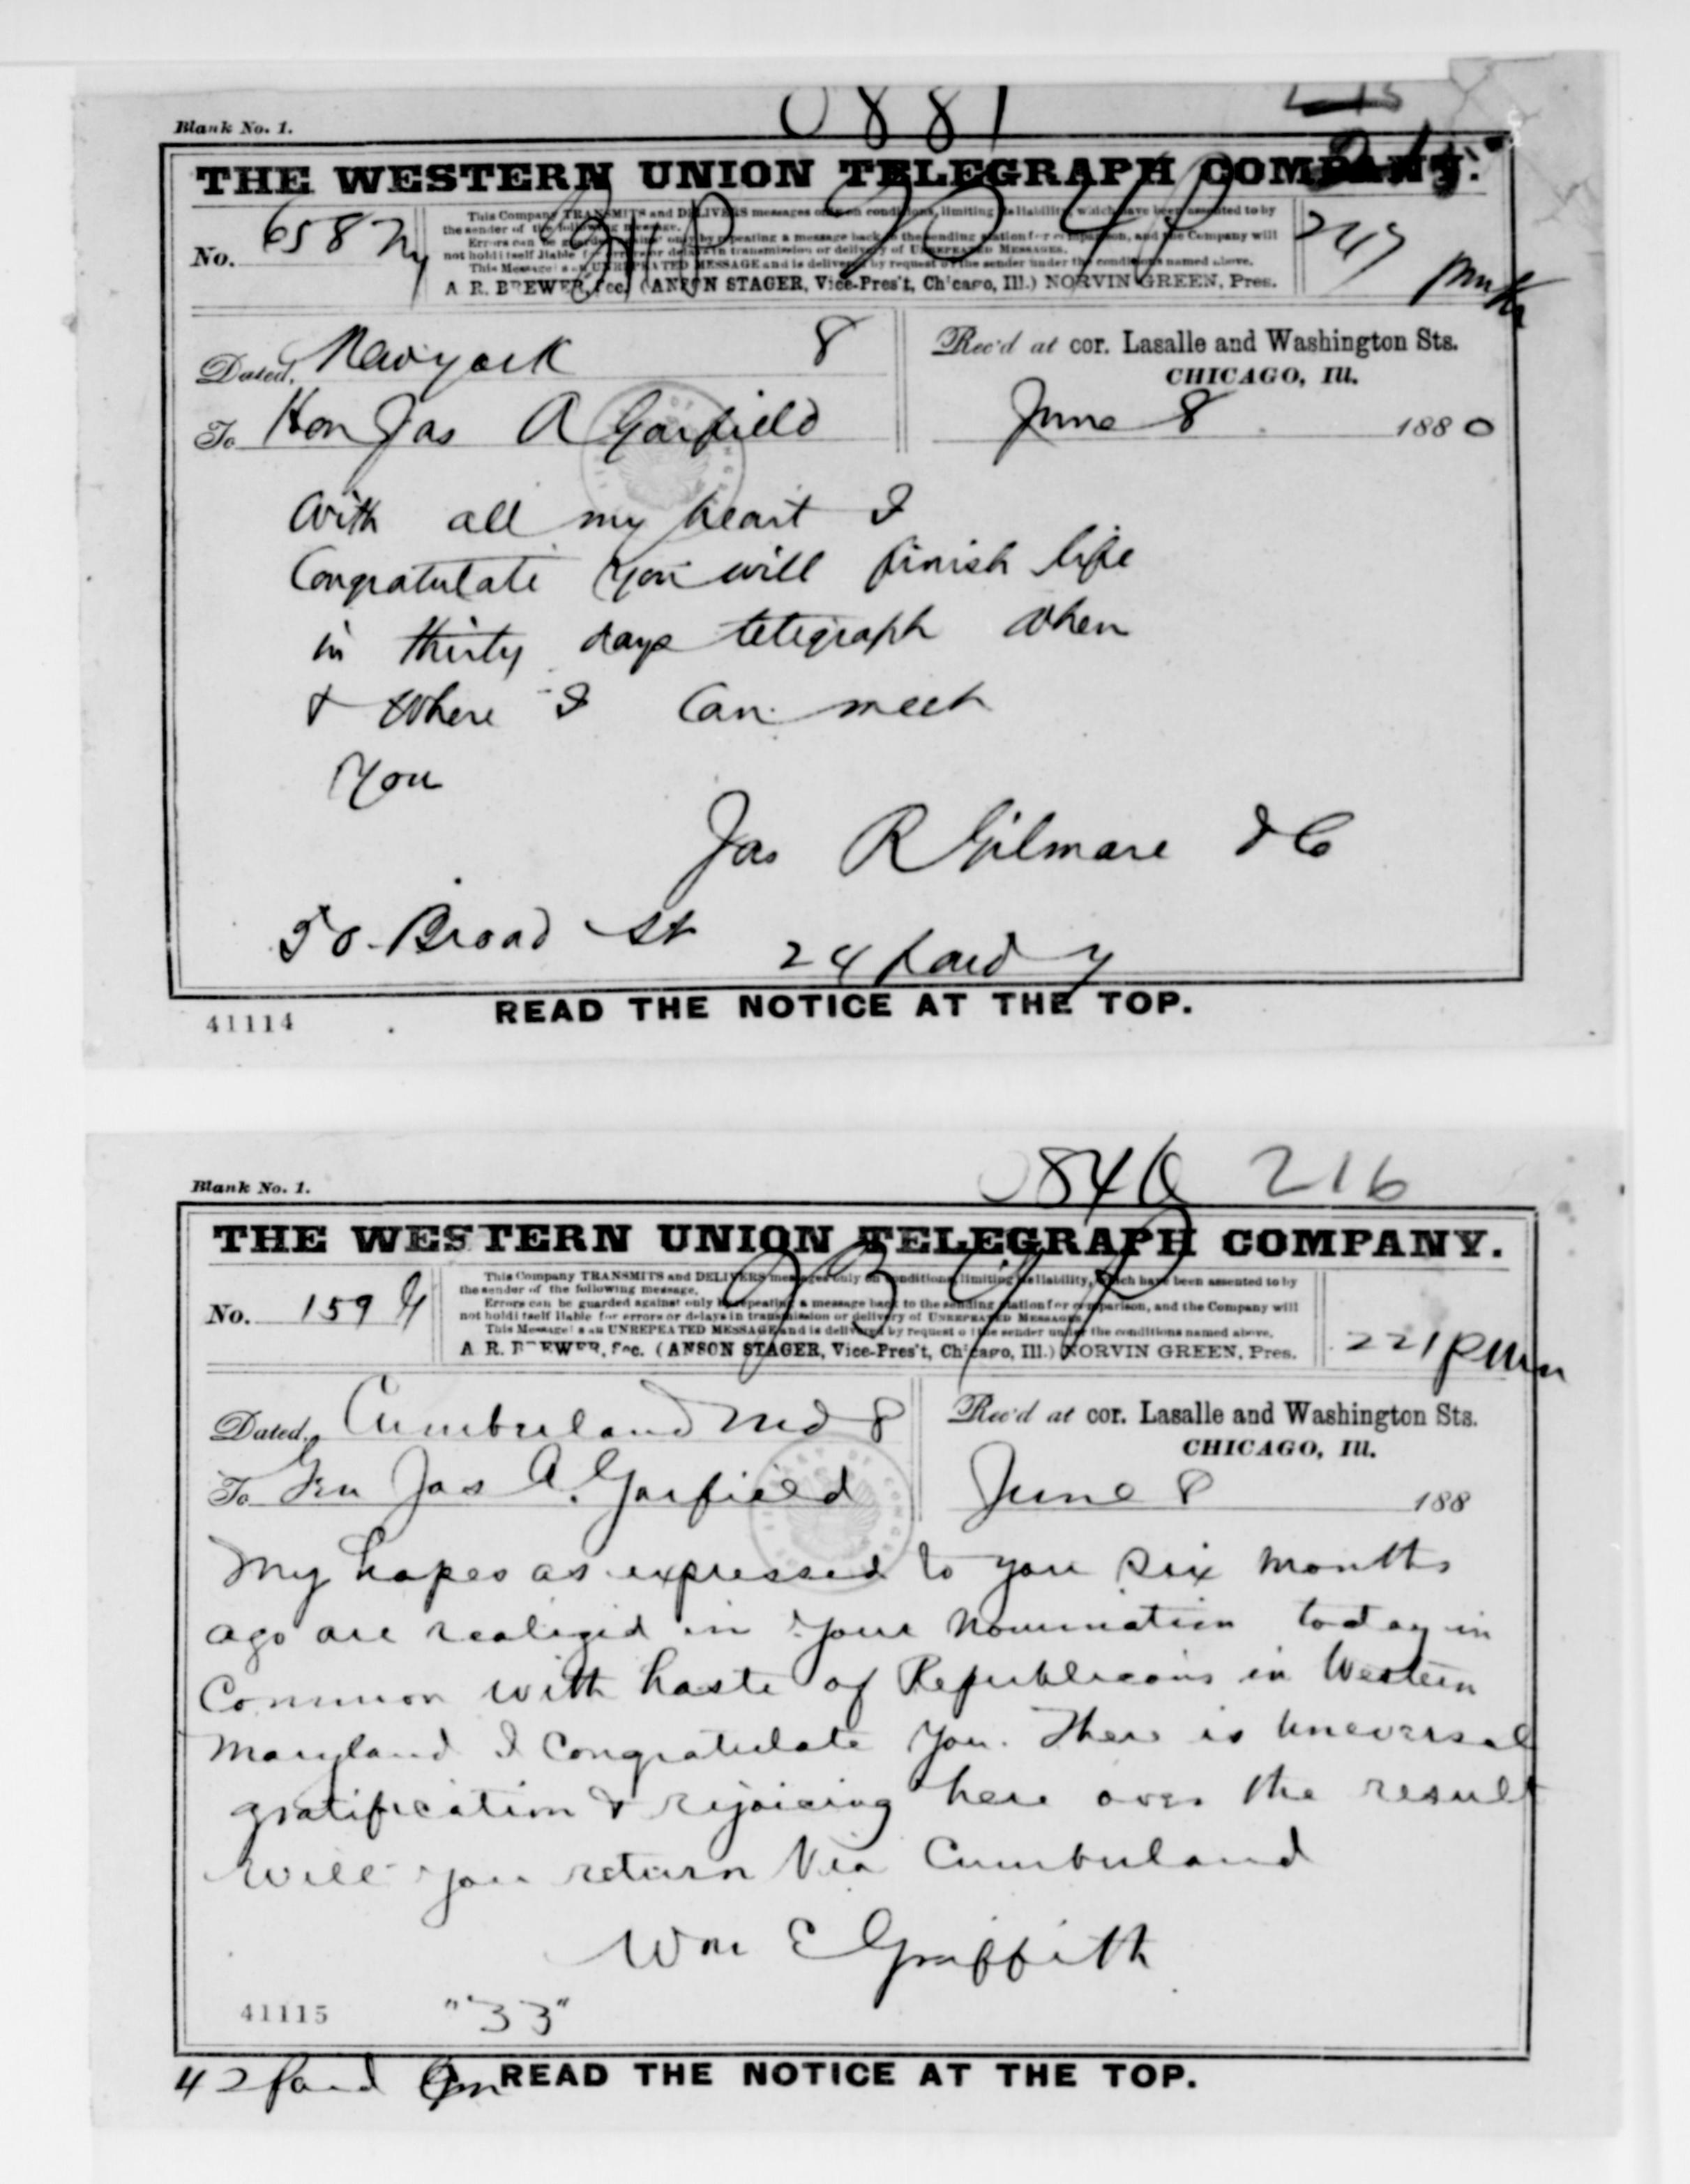 0881
Blank No. 1.
THE WESTERN UNION TELEGRAPH COMPANY.
No. 658 Ny
This Company TRANSMITS and DELIVERS messages only on conditions, limiting its liability, which have been assented to by
the sender of the following message.
Errors can be guarded against only by repeating a message back to the sending station for comparison, and the Company will
not hold itself liable for errors or delays in transmission or delivery of UNREPEATED MESSAGES.
This Message is an UNREPEATED MESSAGE and is delivered by request of the sender under the conditions named above.
A. R. BREWER, Sec. (ANSON STAGER, Vice-Pres't, Chicago, Ill.) NORVIN GREEN, Pres.
Dated, Newyork 8
Rec'd at cor. Lasalle and Washington Sts.
CHICAGO, Ill.
To Hon Jas A Garfield
June 8 1880
With all my heart I
Congratulate you will finish life
in thirty days telegraph when
& where I can meet
You
Jas R Gilmare & Co
50 Broad St
24 paid
41114
READ THE NOTICE AT THE TOP.
0840 216
Blank No. 1.
THE WESTERN UNION TELEGRAPH COMPANY.
No. 159
This Company TRANSMITS and DELIVERS messages only on conditions, limiting its liability, which have been assented to by
the sender of the following message.
Errors can be guarded against only by repeating a message back to the sending station for comparison, and the Company will
not hold itself liable for errors or delays in transmission or delivery of UNREPEATED MESSAGES.
This Message is an UNREPEATED MESSAGE and is delivered by request of the sender under the conditions named above.
A. R. BREWER, Sec. (ANSON STAGER, Vice-Pres't, Chicago, Ill.) NORVIN GREEN, Pres.
221 pm
Dated, Cumberland Md 8
Rec'd at cor. Lasalle and Washington Sts.
CHICAGO, Ill.
To Gen Jas A. Garfield
June 8 188
My hopes as expressed to you six months
ago are realized in your nomination today in
Common with hosts of Republicans in Western
Maryland I Congratulate You. There is Uneversal
gratification & rejoicing here over the result
Will you return Via Cumberland
Wm E Griffith
41115 "33"
42 paid
READ THE NOTICE AT THE TOP.